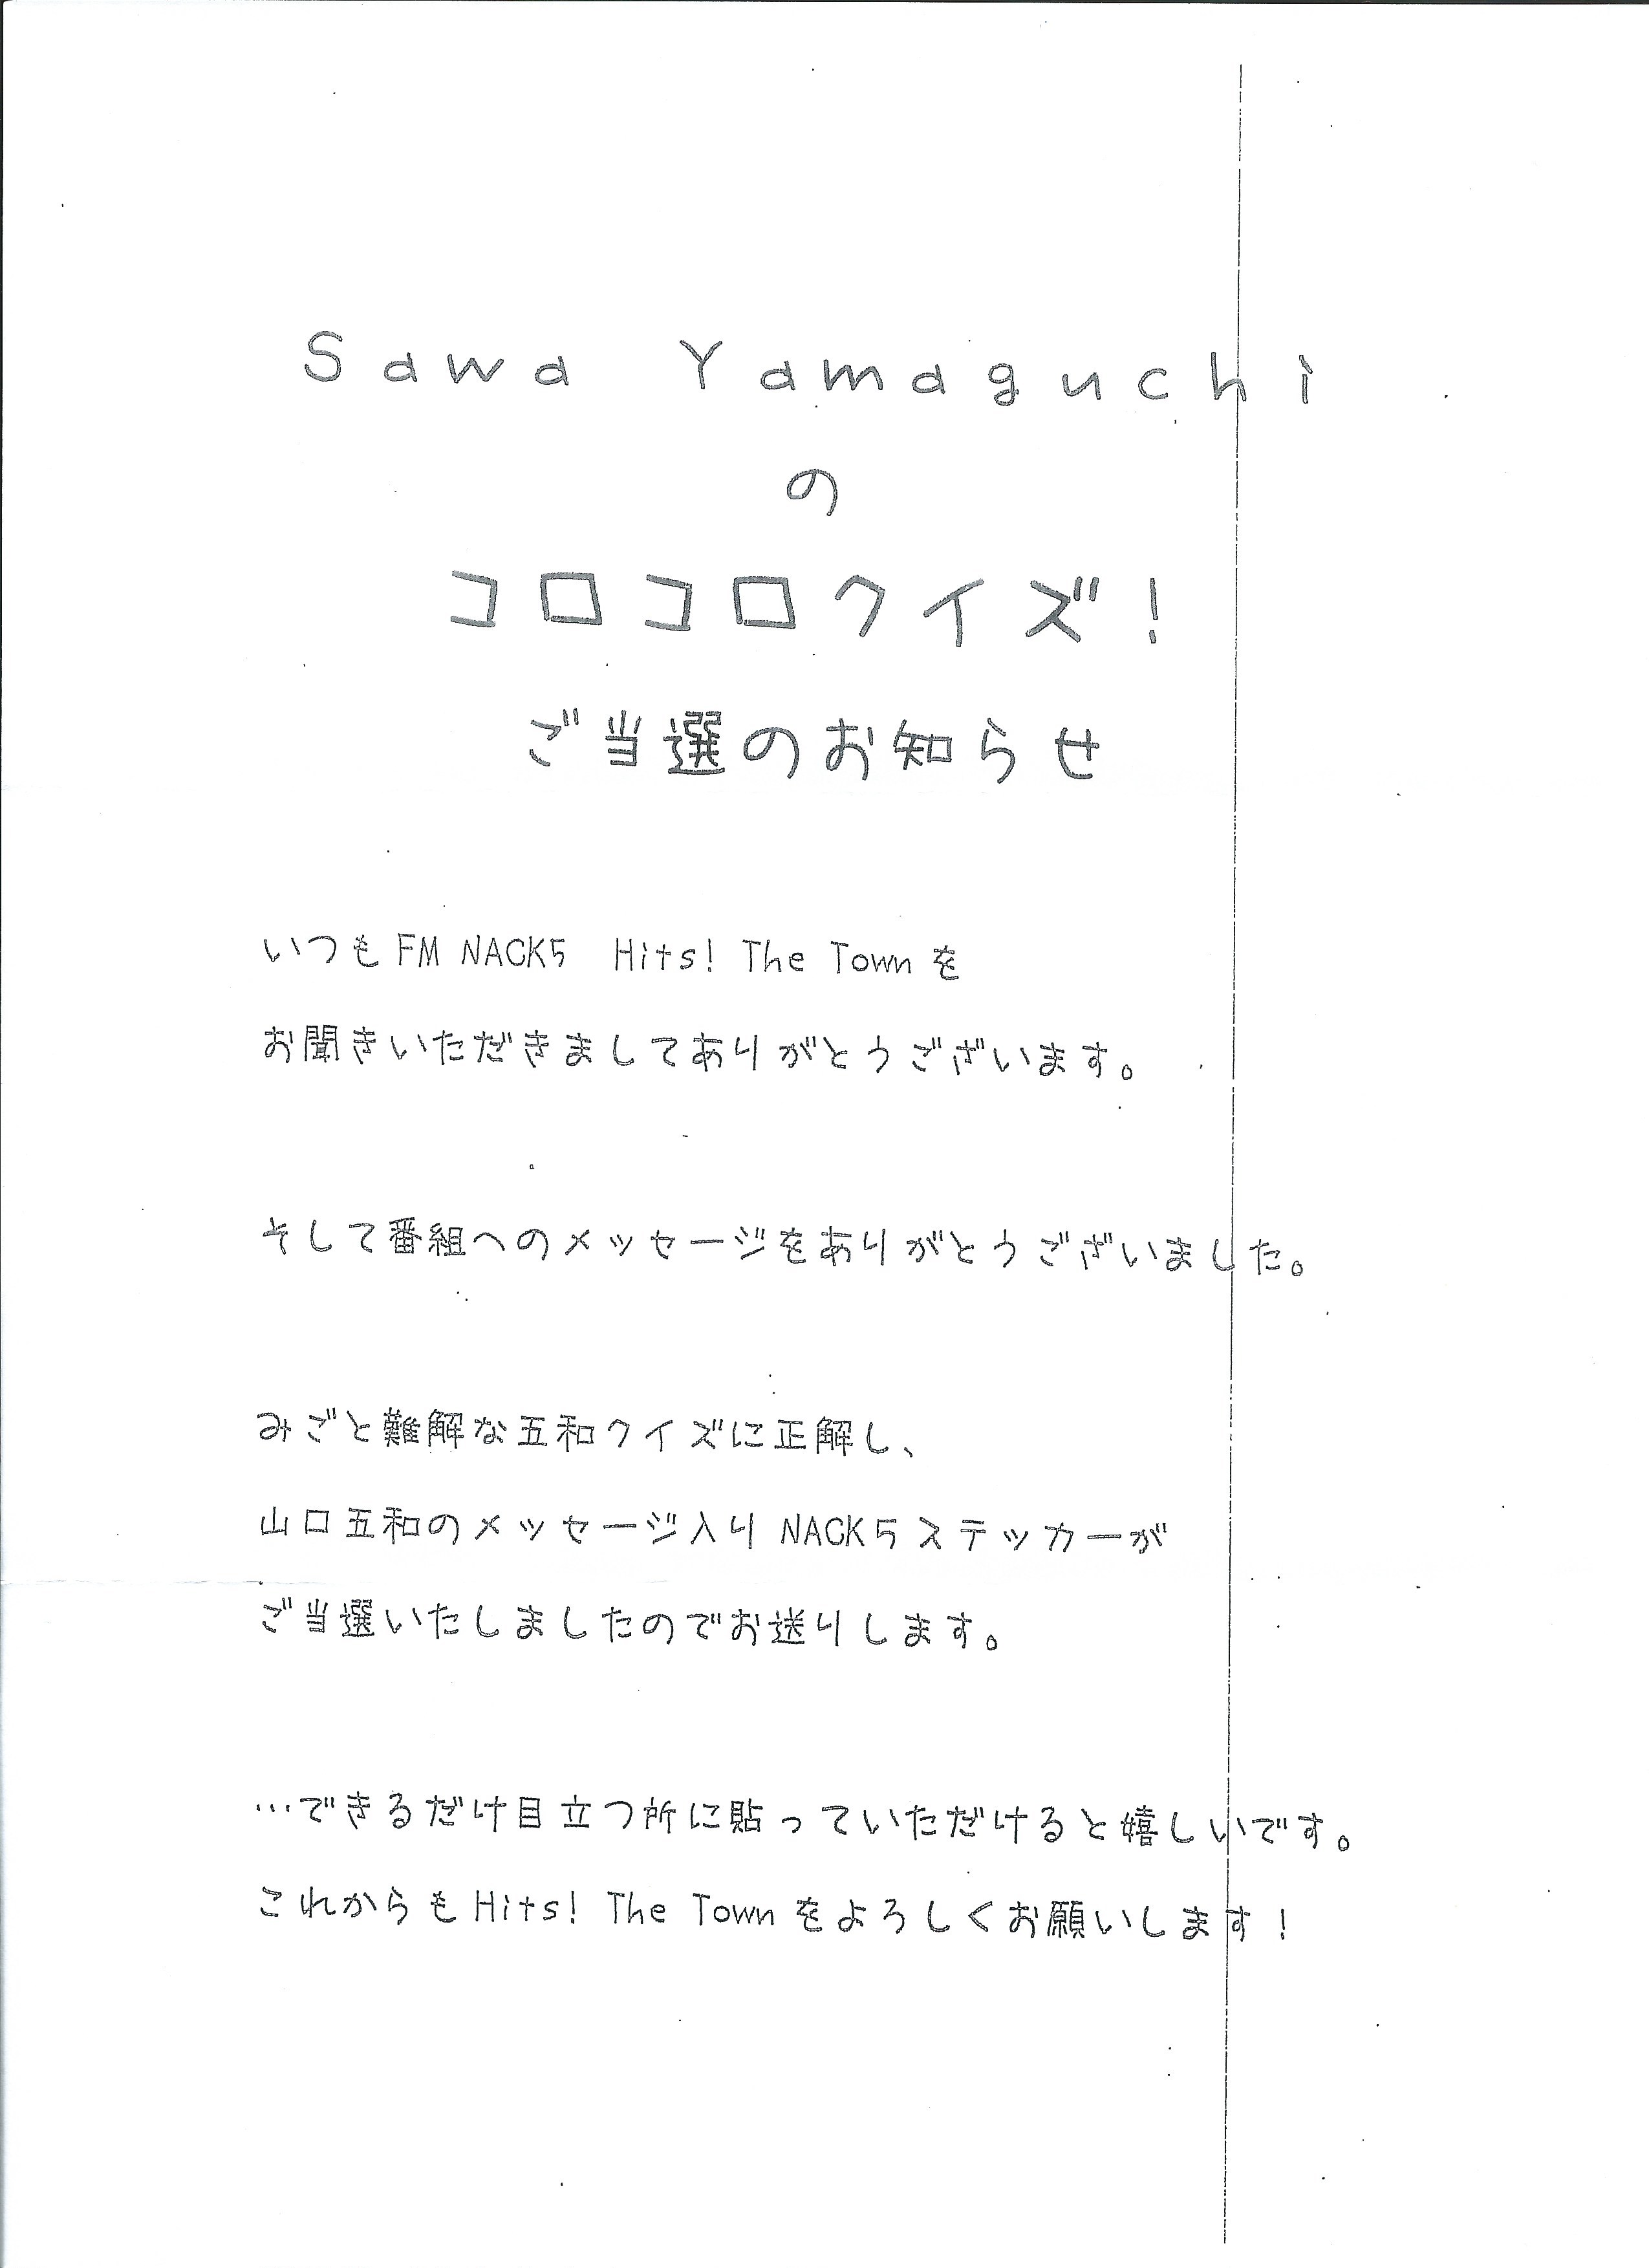 Sawa Yamaguchi
の
コロコロクイズ！
ご当選のお知らせ
いつもFM NACK5　Hits! The Townを
お聞きいただきましてありがとうございます。
そして番組へのメッセージをありがとうございました。
みごと難解な五和クイズに正解し、
山口五和のメッセージ入りNACK5ステッカーが
ご当選いたしましたのでお送りします。
…できるだけ目立つ所に貼っていただけると嬉しいです。
これからもHits! The Townをよろしくお願いします！